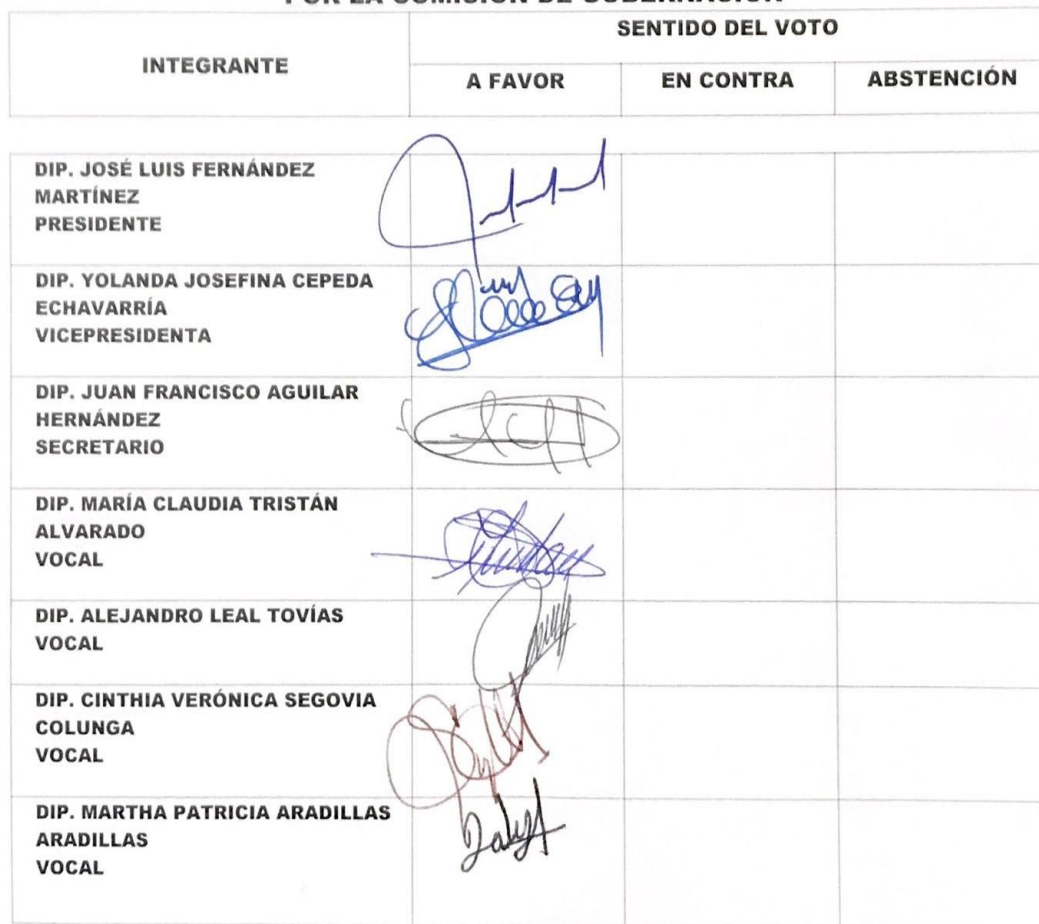 POR LA COMISIÓN DE GOBERNACIÓN
INTEGRANTE
SENTIDO DEL VOTO
A FAVOR
EN CONTRA
ABSTENCIÓN
DIP. JOSÉ LUIS FERNÁNDEZ
MARTÍNEZ
PRESIDENTE
DIP. YOLANDA JOSEFINA CEPEDA
ECHAVARRÍA
VICEPRESIDENTA
DIP. JUAN FRANCISCO AGUILAR
HERNÁNDEZ
SECRETARIO
DIP. MARÍA CLAUDIA TRISTÁN
ALVARADO
VOCAL
DIP. ALEJANDRO LEAL TOVÍAS
VOCAL
DIP. CINTHIA VERÓNICA SEGOVIA
COLUNGA
VOCAL
DIP. MARTHA PATRICIA ARADILLAS
ARADILLAS
VOCAL